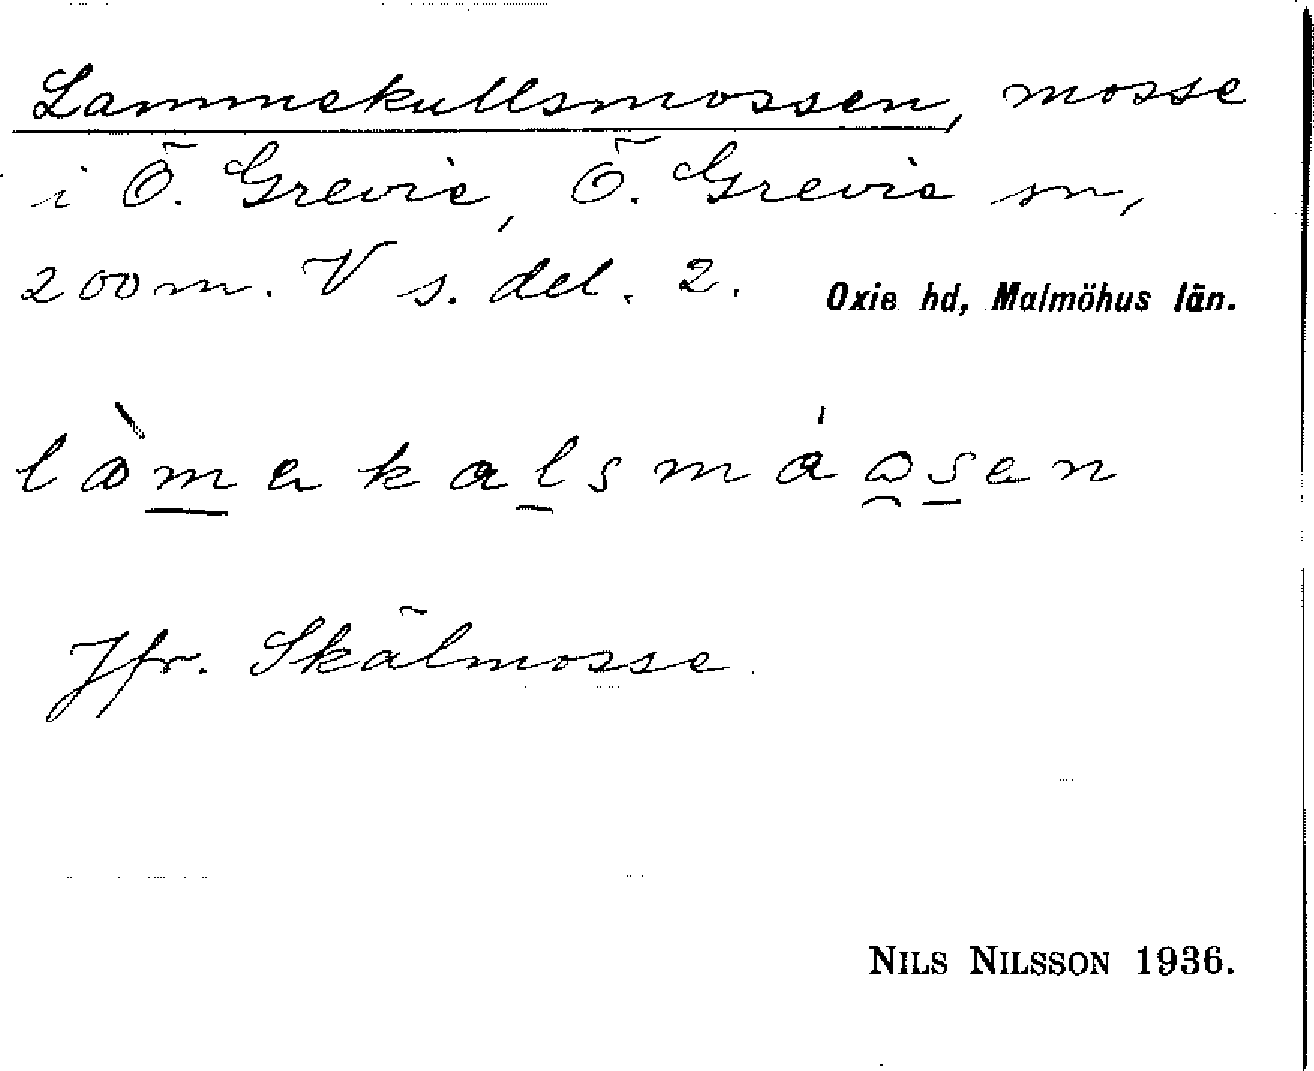 Lammekullsmossen, mosse
i Ö. Grevie, Ö. Grevie sn,
200 m. V s. del. 2. Oxie hd, Malmöhus län.
làmekalsmáosen
Jfr. Skälmosse.
NILS NILSSON 1936.